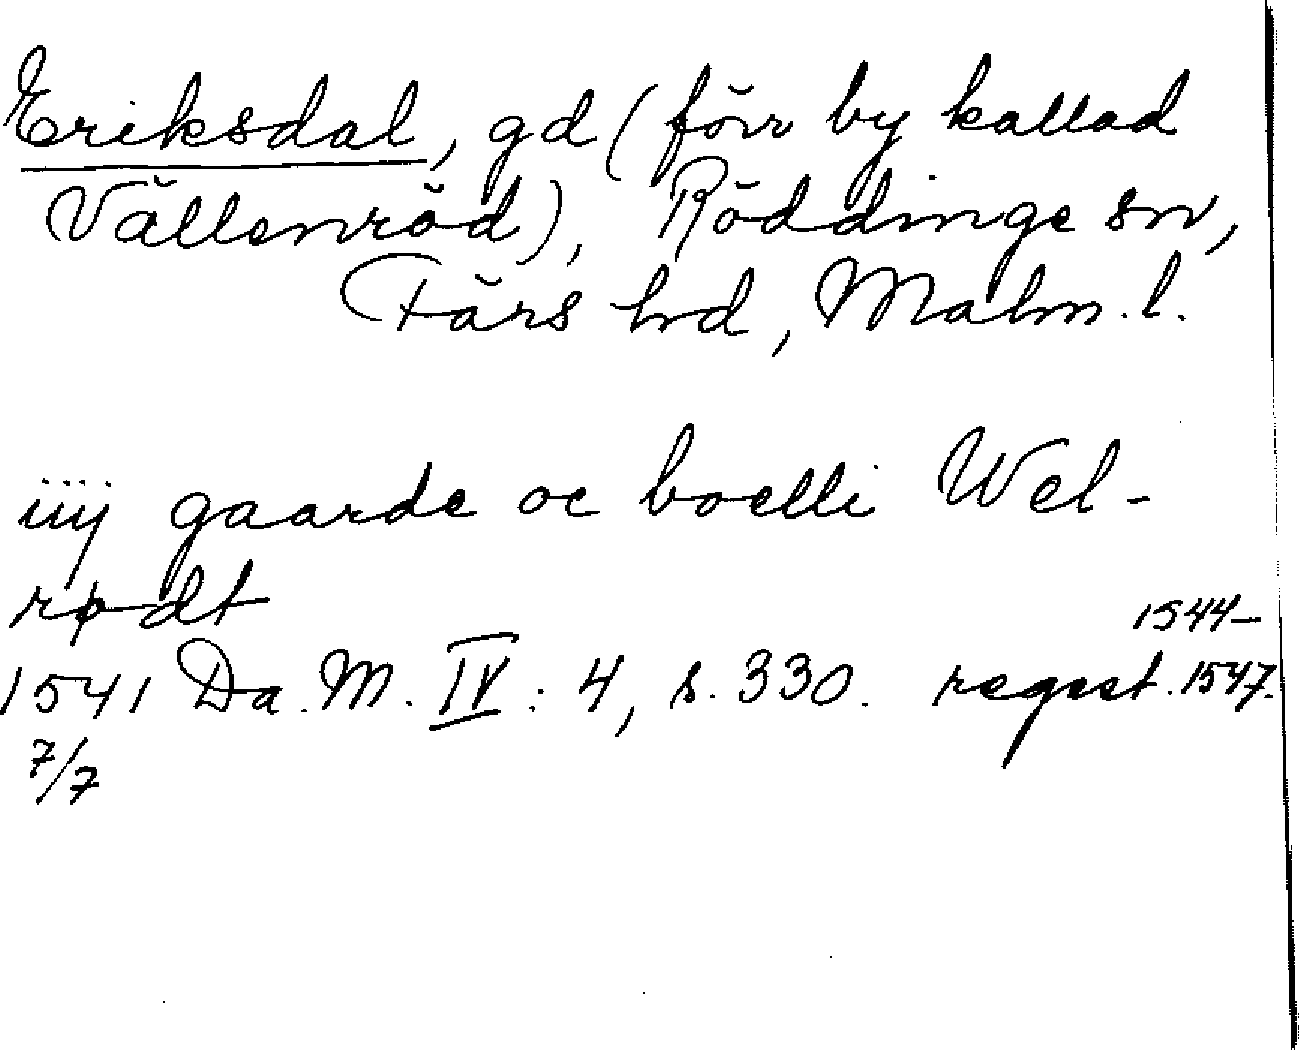 Eriksdal, gd (förr by kallad
Vällenröd), Röddinge sn,
Färs hd, Malm. l.
iiij gaarde oc boelli Wel-
rødt
1544-
1541 Da. M. IV: 4, s. 330. regest. 1547.
7/7